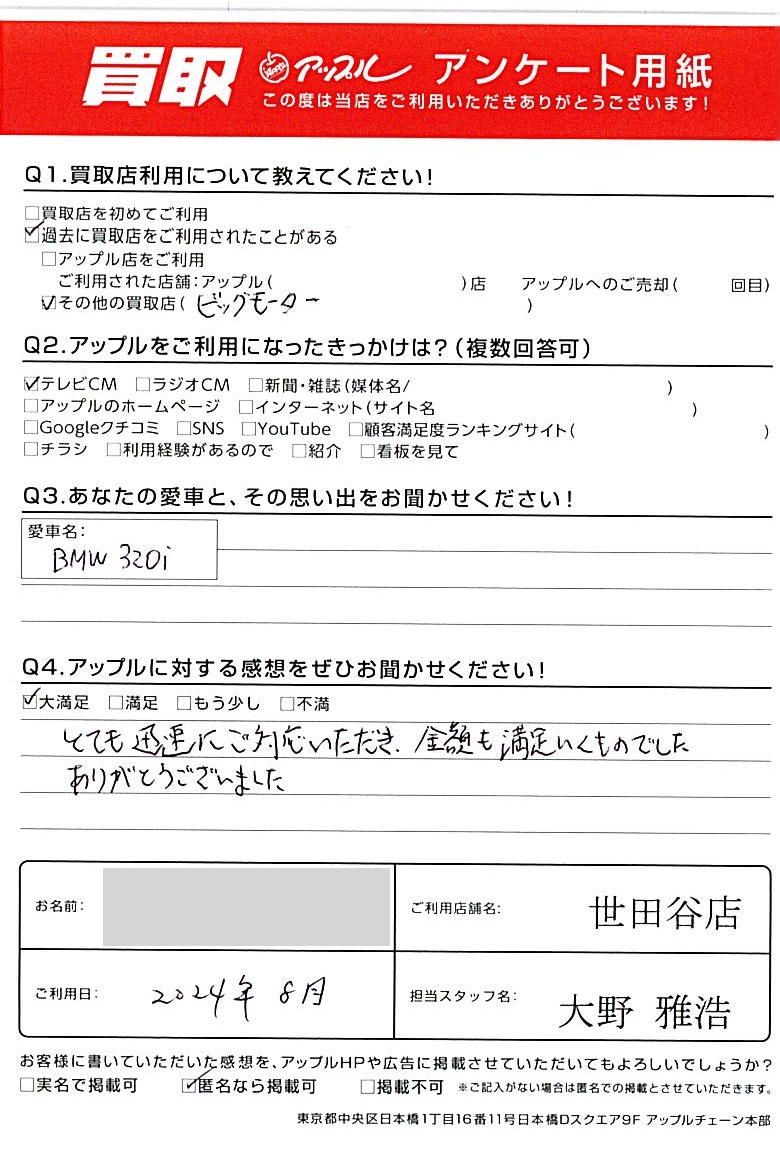 買取 アップル アンケート用紙
この度は当店をご利用いただきありがとうございます!
Q1.買取店利用について教えてください!
□買取店を初めてご利用
☑過去に買取店をご利用されたことがある
□アップル店をご利用
ご利用された店舗:アップル( )店 アップルへのご売却( 回目)
☑その他の買取店( ビッグモーター )
Q2.アップルをご利用になったきっかけは?(複数回答可)
☑テレビCM □ラジオCM □新聞・雑誌(媒体名/ )
□アップルのホームページ □インターネット(サイト名 )
□Googleクチコミ □SNS □YouTube □顧客満足度ランキングサイト( )
□チラシ □利用経験があるので □紹介 □看板を見て
Q3.あなたの愛車と、その思い出をお聞かせください!
愛車名:
BMW 320i
Q4.アップルに対する感想をぜひお聞かせください!
☑大満足 □満足 □もう少し □不満
とても迅速にご対応いただき、金額も満足いくものでした
ありがとうございました
お名前: ご利用店舗名: 世田谷店
ご利用日: 2024年 8月 担当スタッフ名: 大野 雅浩
お客様に書いていただいた感想を、アップルHPや広告に掲載させていただいてもよろしいでしょうか?
□実名で掲載可 ☑匿名なら掲載可 □掲載不可 ※ご記入がない場合は匿名での掲載とさせていただきます。
東京都中央区日本橋1丁目16番11号日本橋Dスクエア9F アップルチェーン本部